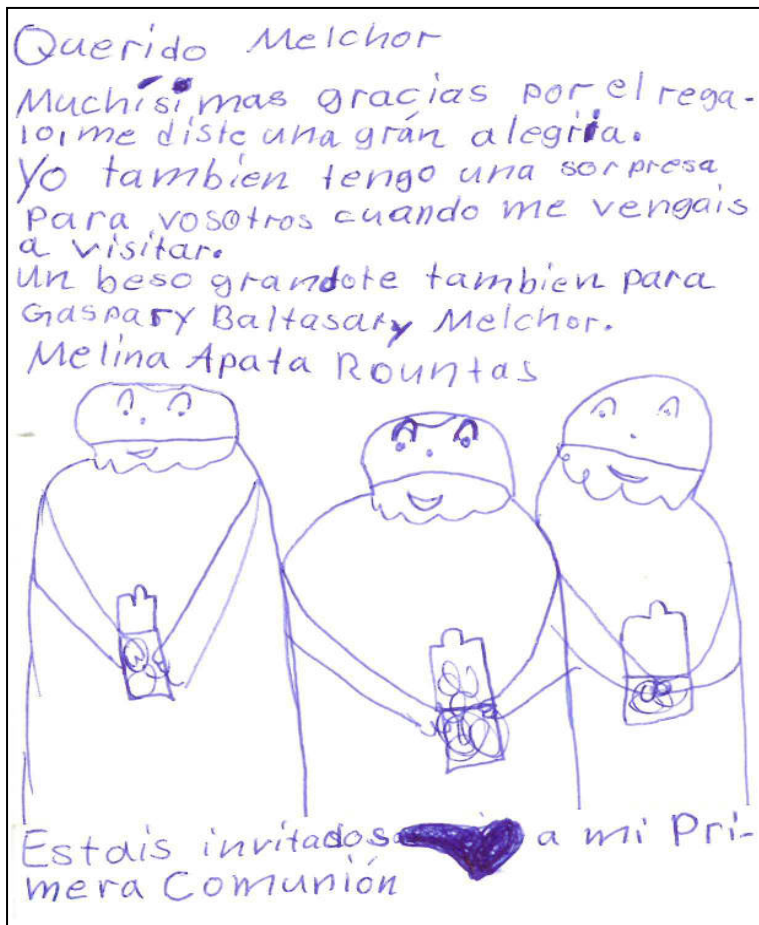 Querido Melchor
Muchísimas gracias por el rega-
lo, me diste una grán alegria.
Yo tambien tengo una sorpresa
para vosotros cuando me vengais
a visitar.
Un beso grandote tambien para
Gaspar y Baltasar y Melchor.
Melina Apata Rountas
Estais invitados a mi Pri-
mera Comunión